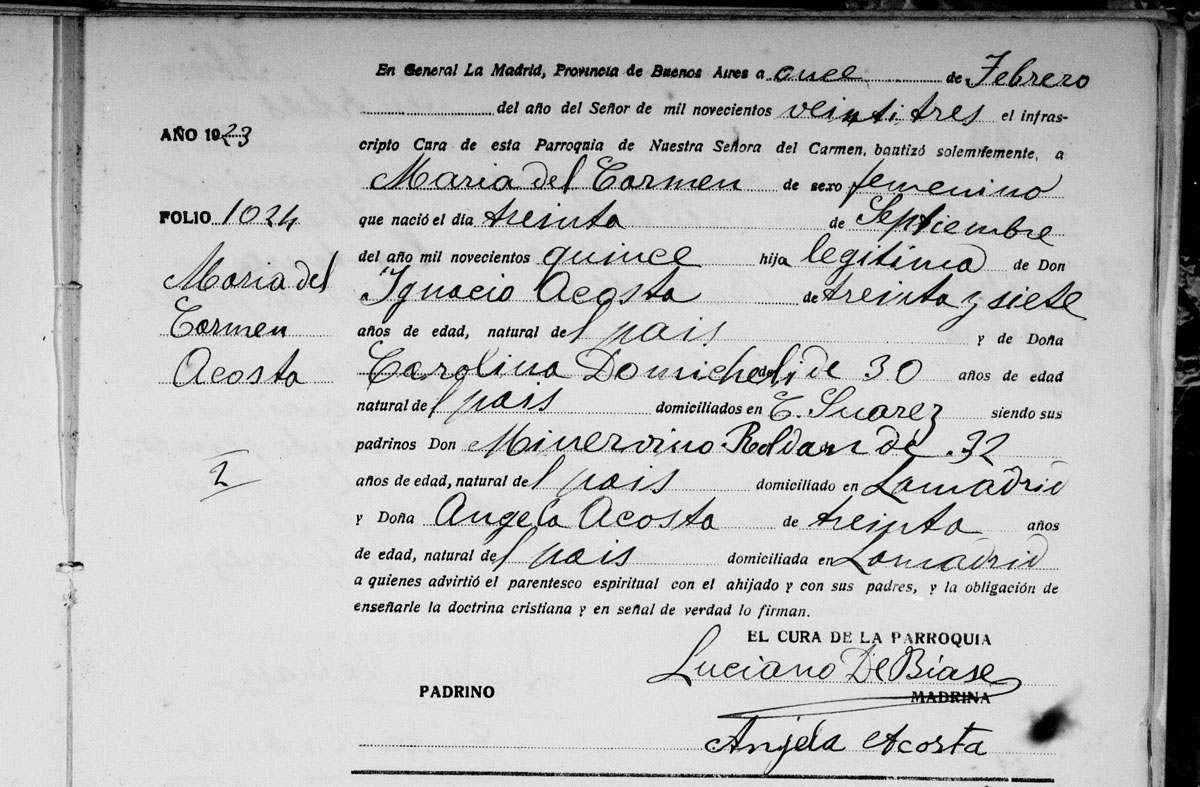 En General La Madrid, Provincia de Buenos Aires a once de Febrero
del año del Señor de mil novecientos veintitres el infras-
AÑO 1923
cripto Cura de esta Parroquia de Nuestra Señora del Carmen, bautizó solemnemente, a
Maria del Carmen de sexo femenino
FOLIO 1024 que nació el día treinta de Septiembre
del año mil novecientos quince hija legitima de Don
Maria del Ignacio Acosta de treinta y siete
Carmen años de edad, natural del pais y de Doña
Acosta Carolina Domicheli de 30 años de edad
natural del pais domiciliados en C. Suarez siendo sus
padrinos Don Minervino Roldan de 32
años de edad, natural del pais domiciliado en Lamadrid
y Doña Angela Acosta de treinta años
de edad, natural del pais domiciliada en Lamadrid
a quienes advirtió el parentesco espiritual con el ahijado y con sus padres, y la obligación de
enseñarle la doctrina cristiana y en señal de verdad lo firman.
EL CURA DE LA PARROQUIA
Luciano De Biase
PADRINO MADRINA
Anjela Acosta